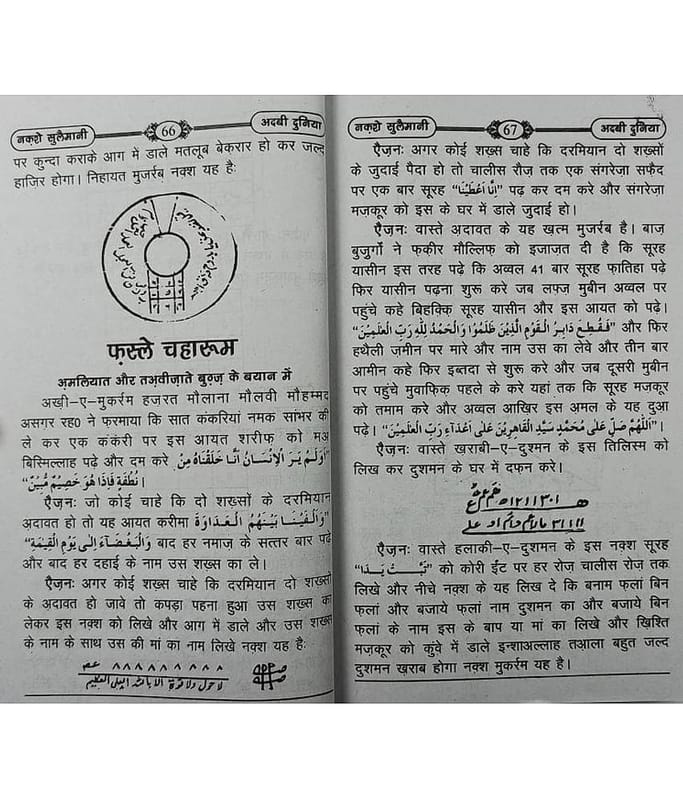 नक़्शे सुलैमानी 66 अदबी दुनिया
पर कुन्दा कराके आग में डाले मतलूब बेकरार हो कर जल्द
हाज़िर होगा। निहायत मुजर्रब नक़्श यह हैः
फ़स्ले चहारूम
अ़मलियात और तअ़वीज़ाते बुग़्ज़ के बयान में
अख़ी-ए-मुकर्रम हज़रत मौलाना मौलवी मौहम्मद
असगर रह0 ने फ़रमाया कि सात कंकरियां नमक सांभर की
ले कर एक कंकरी पर इस आयत शरीफ़ को मअ़
बिस्मिल्लाह पढ़े और दम करे "اَوَلَمْ يَرَ الْاِنْسَانُ اَنَّا خَلَقْنَاهُ مِنْ
نُطْفَةٍ فَاِذَا هُوَ خَصِيْمٌ مُّبِيْنٌ"।
ऐज़नः जो कोई चाहे कि दो शख़्सों के दरमियान
अदावत हो तो यह आयत करीमा "وَالْقَيْنَا بَيْنَهُمُ الْعَدَاوَةَ
وَالْبَغْضَآءَ اِلٰى يَوْمِ الْقِيٰمَةِ" बाद हर नमाज़ के सत्तर बार पढ़े
और बाद हर दहाई के नाम उस शख़्स का ले।
ऐज़नः अगर कोई शख़्स चाहे कि दरमियान दो शख़्सों
के अदावत हो जावे तो कपड़ा पहना हुआ उस शख़्स का
लेकर इस नक़्श को लिखे और आग में डाले और उस शख़्स
के नाम के साथ उस की मां का नाम लिखे नक़्श यह हैः
٨٨٨٨٨٨٨٨٨
لا حول ولا قوة الا بالله العلي العظيم
नक़्शे सुलैमानी 67 अदबी दुनिया
ऐज़नः अगर कोई शख़्स चाहे कि दरमियान दो शख़्सों
के जुदाई पैदा हो तो चालीस रौज़ तक एक संगरेज़ा सफ़ैद
पर एक बार सूरह "اِنَّا اَعْطَيْنَا" पढ़ कर दम करे और संगरेज़ा
मज़कूर को इस के घर में डाले जुदाई हो।
ऐज़नः वास्ते अदावत के यह ख़त्म मुजर्रब है। बाज़
बुज़ुर्गो ने फ़क़ीर मौल्लिफ़ को इजाज़त दी है कि सूरह
यासीन इस तरह पढ़े कि अव्वल 41 बार सूरह फ़ातिहा पढ़े
फिर यासीन पढ़ना शुरू करे जब लफ़्ज़ मुबीन अव्वल पर
पहुंचे कहे बिहक्क़ि सूरह यासीन और इस आयत को पढ़े।
"فَقُطِعَ دَابِرُ الْقَوْمِ الَّذِيْنَ ظَلَمُوْا وَالْحَمْدُ لِلّٰهِ رَبِّ الْعٰلَمِيْنَ" और फिर
हथैली ज़मीन पर मारे और नाम उस का लेवे और तीन बार
आमीन कहे फिर इब्तदा से शुरू करे और जब दूसरी मुबीन
पर पहुंचे मुवाफ़िक़ पहले के करे यहां तक कि सूरह मज़कूर
को तमाम करे और अव्वल आख़िर इस अमल के यह दुआ
पढ़े। "اَللّٰهُمَّ صَلِّ عَلٰى مُحَمَّدٍ سَيِّدِ الْقَاهِرِيْنَ عَلٰى اَعْدَآءِ رَبِّ الْعٰلَمِيْنَ"।
ऐज़नः वास्ते ख़राबी-ए-दुश्मन के इस तिलिस्म को
लिख कर दुशमन के घर में दफ़न करे।
ऐज़नः वास्ते हलाकी-ए-दुशमन के इस नक़्श सूरह
"تَبَّتْ يَدَا" को कोरी ईंट पर हर रोज़ चालीस रोज़ तक
लिखे और नीचे नक़्श के यह लिख दे कि बनाम फ़लां बिन
फ़लां और बजाये फ़लां नाम दुशमन का और बजाये बिन
फ़लां के नाम इस के बाप या मां का लिखे और ख़िश्ति
मज़कूर को कुंवे में डाले इन्शाअल्लाह तआ़ला बहुत जल्द
दुशमन ख़राब होगा नक़्श मुकर्रम यह है।